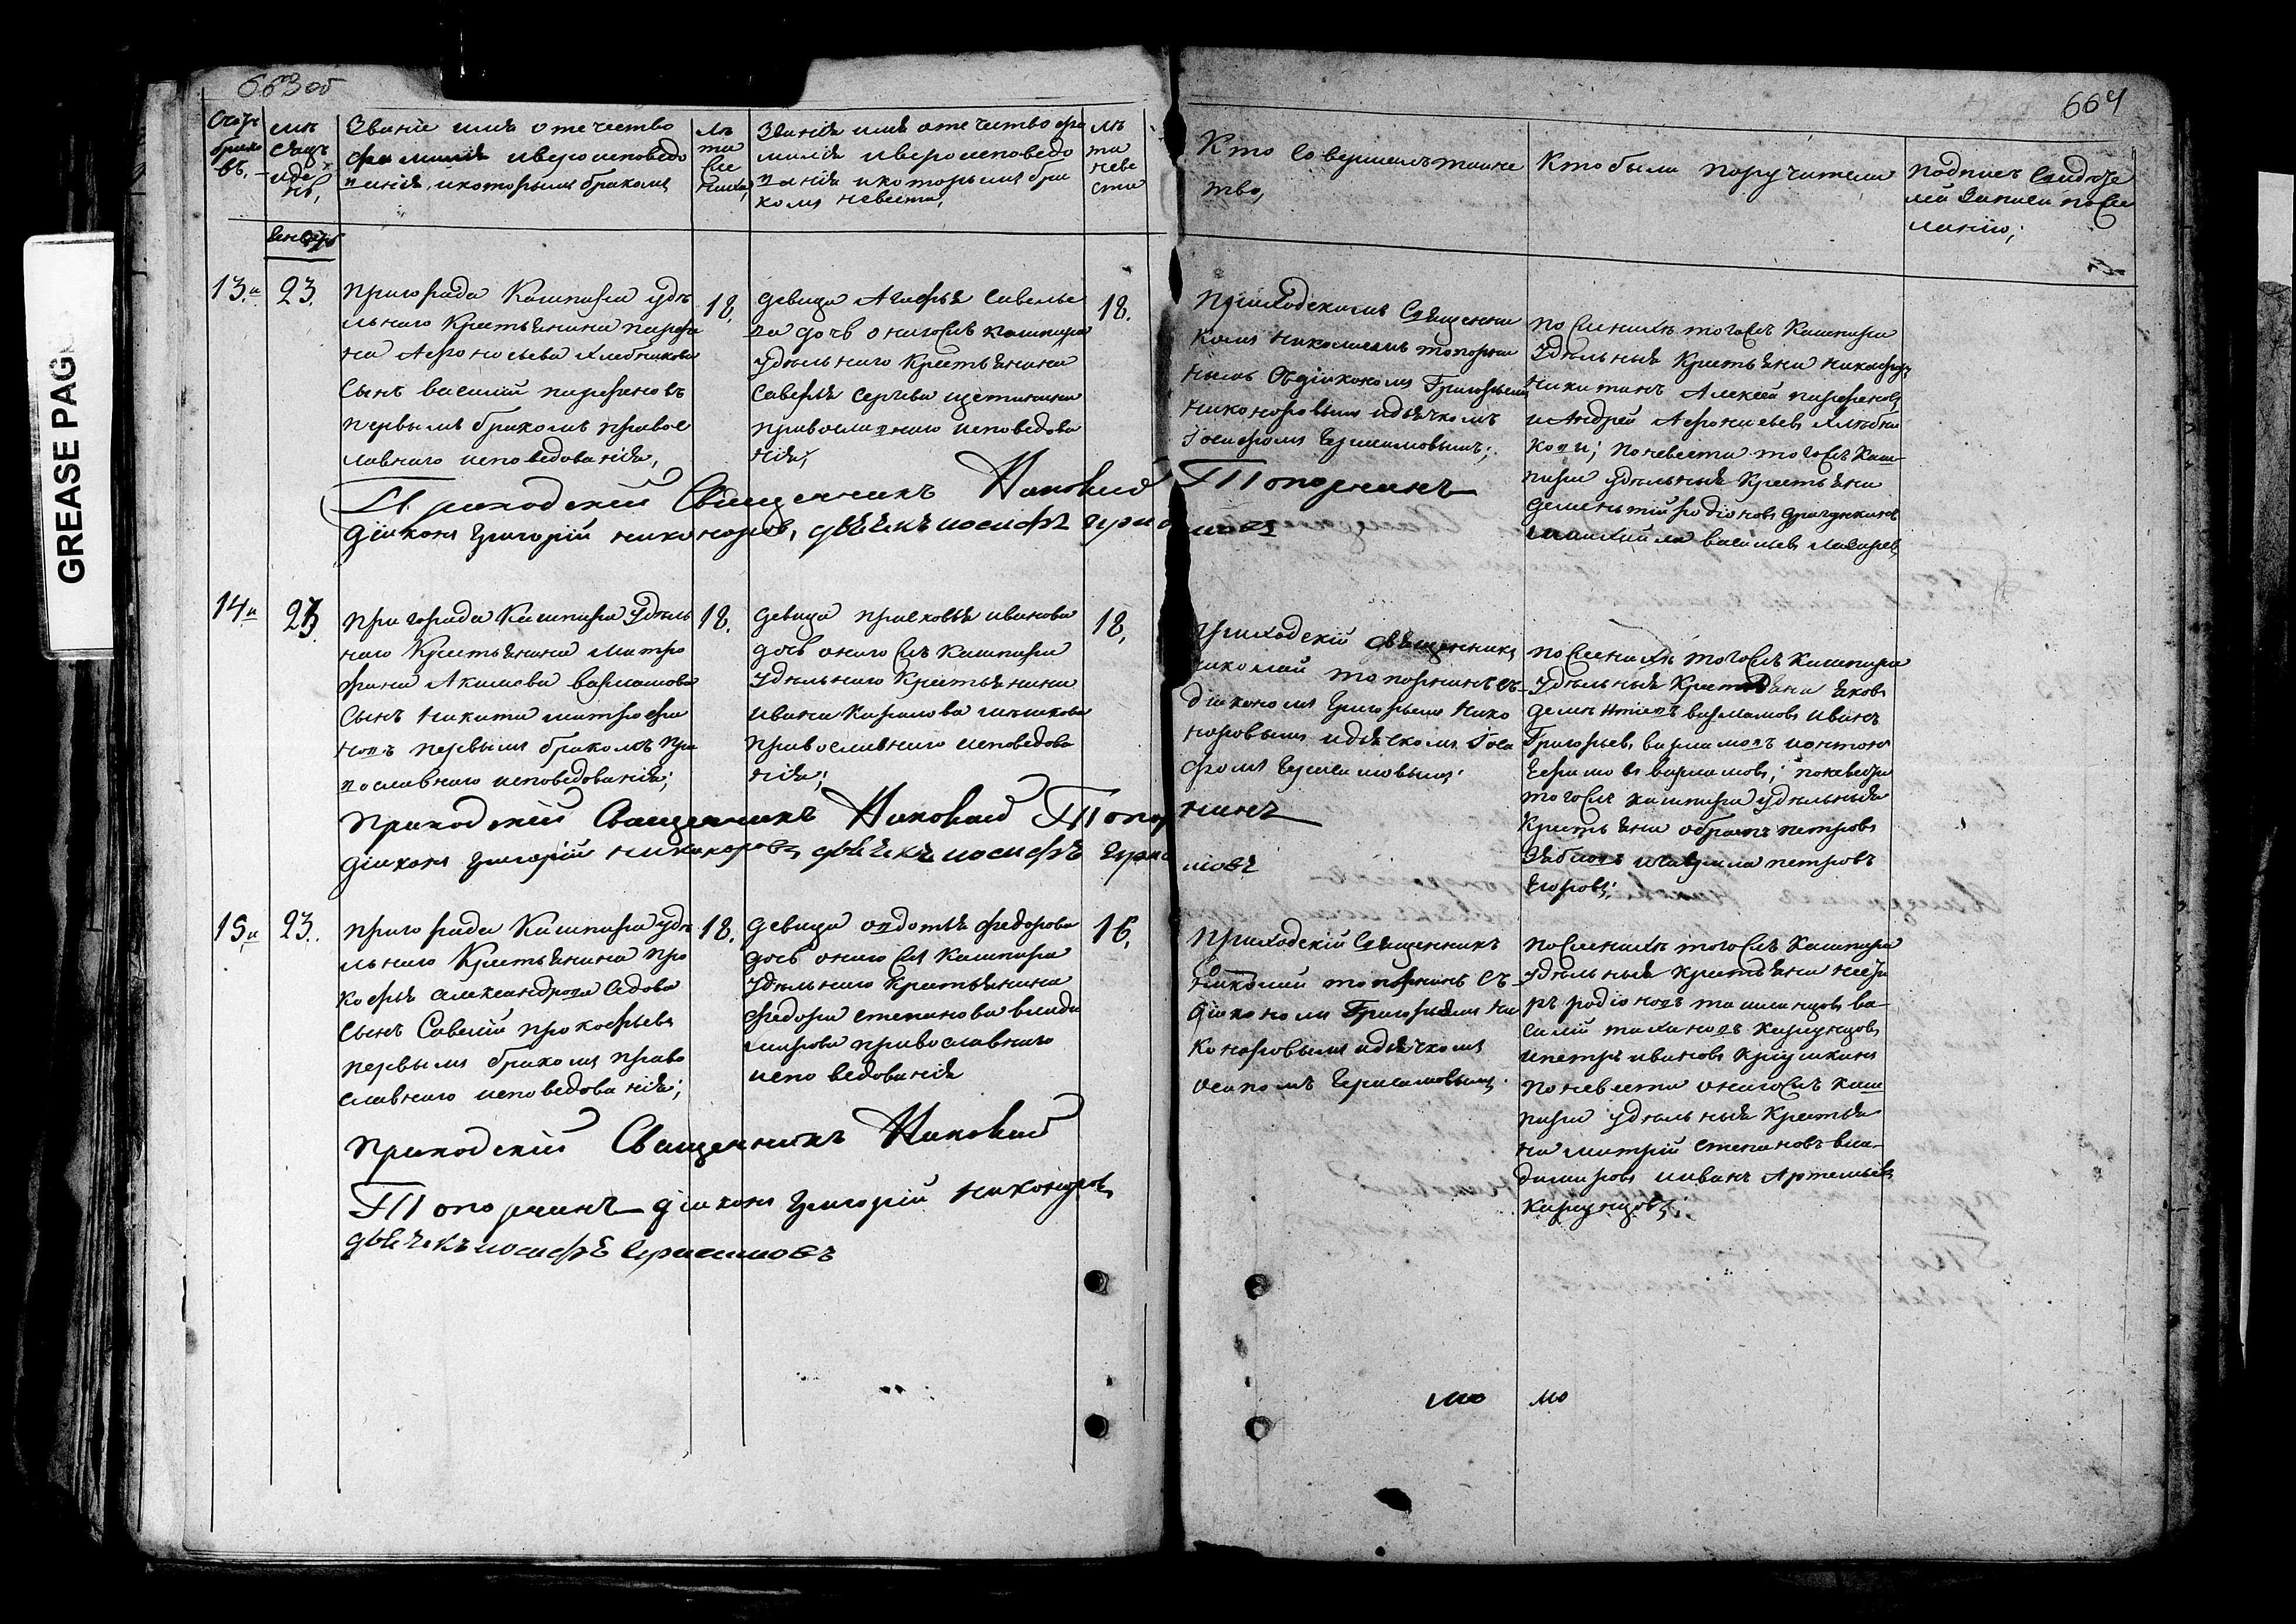 663 об
664
GREASE PAG
Счотъ браковъ.
мѣсяцъ и день,
Званіе имя отечество
фамилія и вероисповедо
ванія, и которымъ бракомъ
лѣта жениха,
Званія имя отечество фа
милія и вероисповедо
ванія и которымъ бра
комъ невеста,
лѣта невесты
Кто совершалъ таинс
тво,
Кто были поручители
подпись свидѣте
лей записи по же
ланію;
Генварь
13.й
23.
Пригорада Кашпира удѣ
льнаго Крестьянина парфе
на Афонасьева Хлебникова
Сынъ василий парфеновъ
первымъ бракомъ правос
лавнаго исповедованія,
18.
девица Агафья савелье
ва дочь онагожъ кашпира
удѣльнаго Крестьянина
Савелья Сергѣева щетинина
православнаго исповедова
нія;
18.
Приходскимъ Священни
комъ Николаемъ топорни
нымъ съ діакономъ Григорьемъ
никоноровымъ и дьячкомъ
Іосифомъ Герасимовымъ;
по женихѣ тогожъ Кашпира
Удѣльныя Крестьяна никифоръ
никитинъ Алексей парфеновъ
и Андрей Афонасьевъ Хлѣбни
ковы; по невести тогожъ Каш-
пира удѣльныя Крестьяна
дементий родіоновъ
михайла васильевъ
Приходскій Священникъ Николай Топорнинъ
діаконъ Григорій никоноровъ, дьячекъ иосифъ герасимовъ
14й
23.
пригорада Кашпира Удѣль
наго Крестьянина Митро
фана Акимова варламова
Сынъ никита митрофа
новъ первымъ бракомъ пра
вославнаго исповедованія;
18.
девица прасковья иванова
дочь онагожъ Кашпира
удѣльнаго Крестьянина
ивана Кирилова мѣшкова
православнаго исповедова
нія;
18,
приходскій священникъ
николай топорнинъ съ
діакономъ Григорьемъ Нико
норовымъ и дьячкомъ Іоси
фомъ Герасимовымъ;
по женихѣ тогожъ Кашпира
Удѣльныя Крестьяна яковъ
варламовъ иванъ
Григорьевъ варламовъ и антонъ
Ефимовъ варламовъ; по невести
тогожъ кашпира удѣльныя
Крестьяна петровъ
и гаврила петровъ
Егоровъ;
приходскій Священникъ Николай Топорнинъ
діаконъ Григорій никоноровъ, дьячекъ иосифъ Герасимовъ
15й
23.
пригорада Кашпира удѣ
льнаго Крестьянина Про
кофья александрова Седова
Сынъ Савелій прокофьевъ
первымъ бракомъ право
славнаго исповедованія;
18.
девица овдотья федорова
дочь онагожъ Кашпира
Удѣльнаго Крестьянина
Федора степанова влади
мирова православнаго
исповедованія
16.
Приходскій Священникъ
Николай топорнинъ съ
діакономъ Григорьемъ Ни
коноровымъ и дьячкомъ
осипомъ Герасимовымъ.
по женихѣ тогожъ Кашпира
удѣльныя крестьяна
родіоновъ ва-
силій
и петръ ивановъ
по невести онагожъ каш
пира удѣльныя Крестья
на митрій степановъ вла-
димировъ и иванъ Артемьевъ
приходскій Священникъ Николай
Топорнинъ діаконъ Григорій никоноровъ
дьячекъ иосифъ Герасимовъ
мо мо